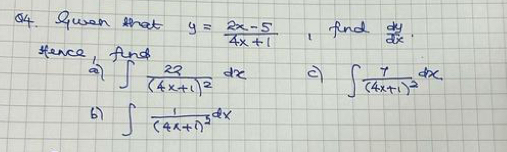 Q4. Given that y = (2x-5)/(4x+1), find dy/dx.
Hence, find
a) ∫ 22/(4x+1)² dx c) ∫ 7/(4x+1)² dx
b) ∫ 1/(4x+1)² dx